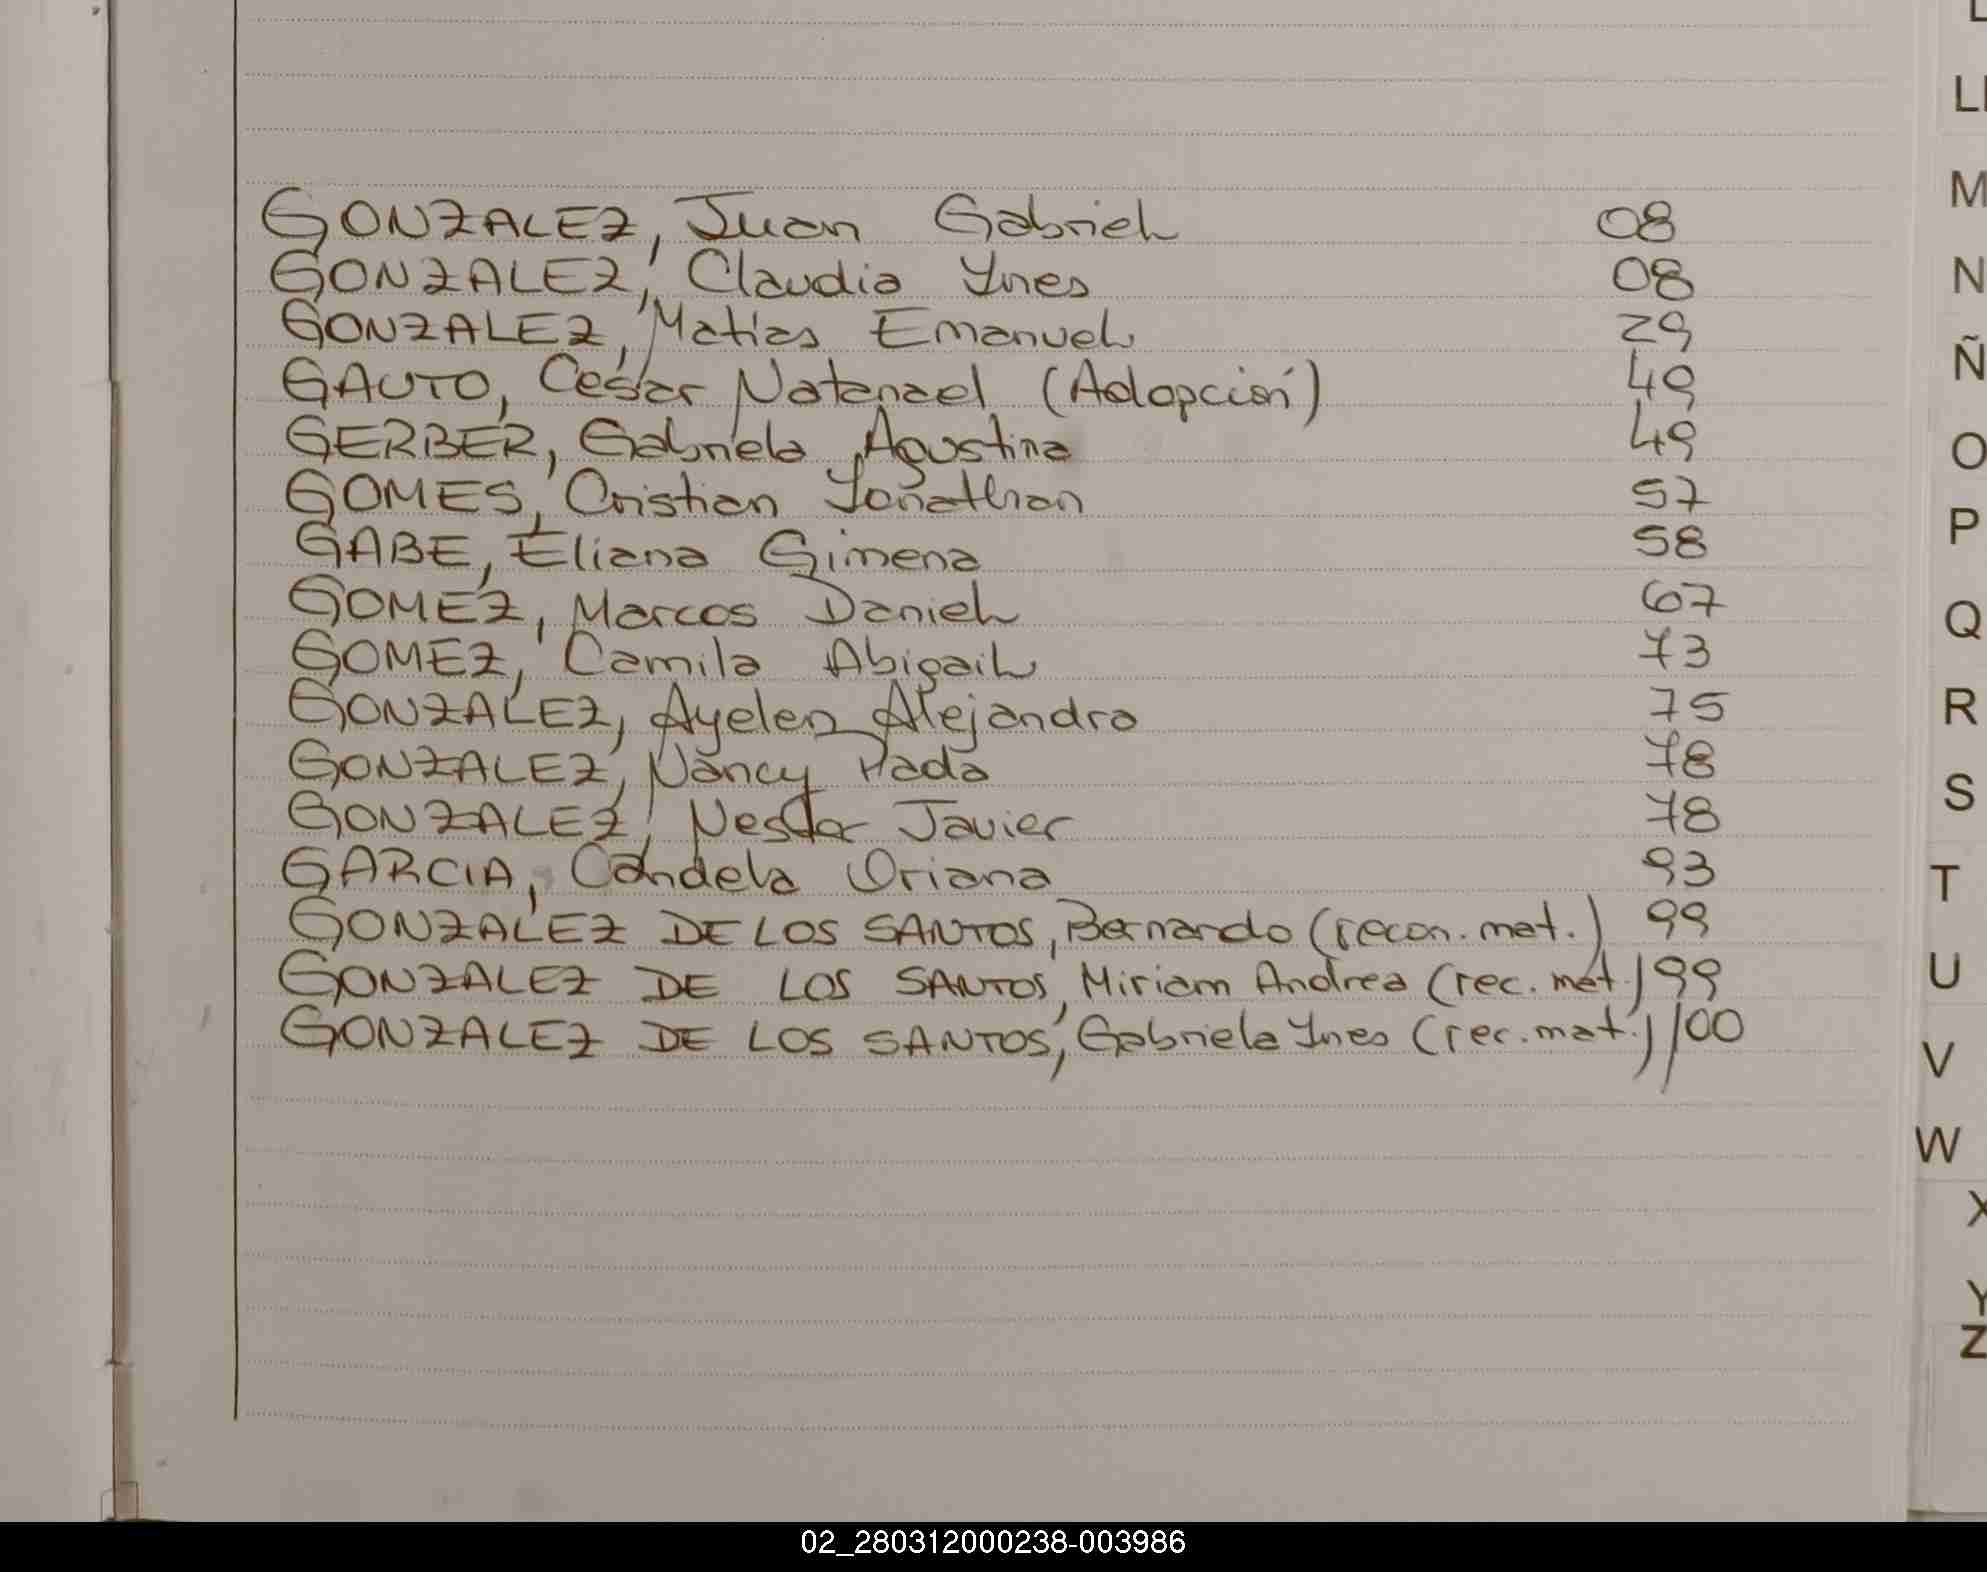 GONZALEZ, Juan Gabriel 08
GONZALEZ, Claudia Ynes 08
GONZALEZ, Matias Emanuel 29
GAUTO, Cesar Natanael (Adopción) 49
GERBER, Gabriela Agustina 49
GOMES, Cristian Jonathan 57
GABE, Eliana Gimena 58
GOMEZ, Marcos Daniel 67
GOMEZ, Camila Abigail 73
GONZALEZ, Ayelen Alejandra 75
GONZALEZ, Nancy 78
GONZALEZ, Nestor Javier 78
GARCIA, Candela Oriana 93
GONZALEZ DE LOS SANTOS, Bernardo (recon. mat.) 99
GONZALEZ DE LOS SANTOS, Miriam Andrea (rec. mat.) 99
GONZALEZ DE LOS SANTOS, Gabriela Ynes (rec. mat.) 100
M
N
Ñ
O
P
Q
R
S
T
U
V
W
X
Y
Z
02_280312000238-003986